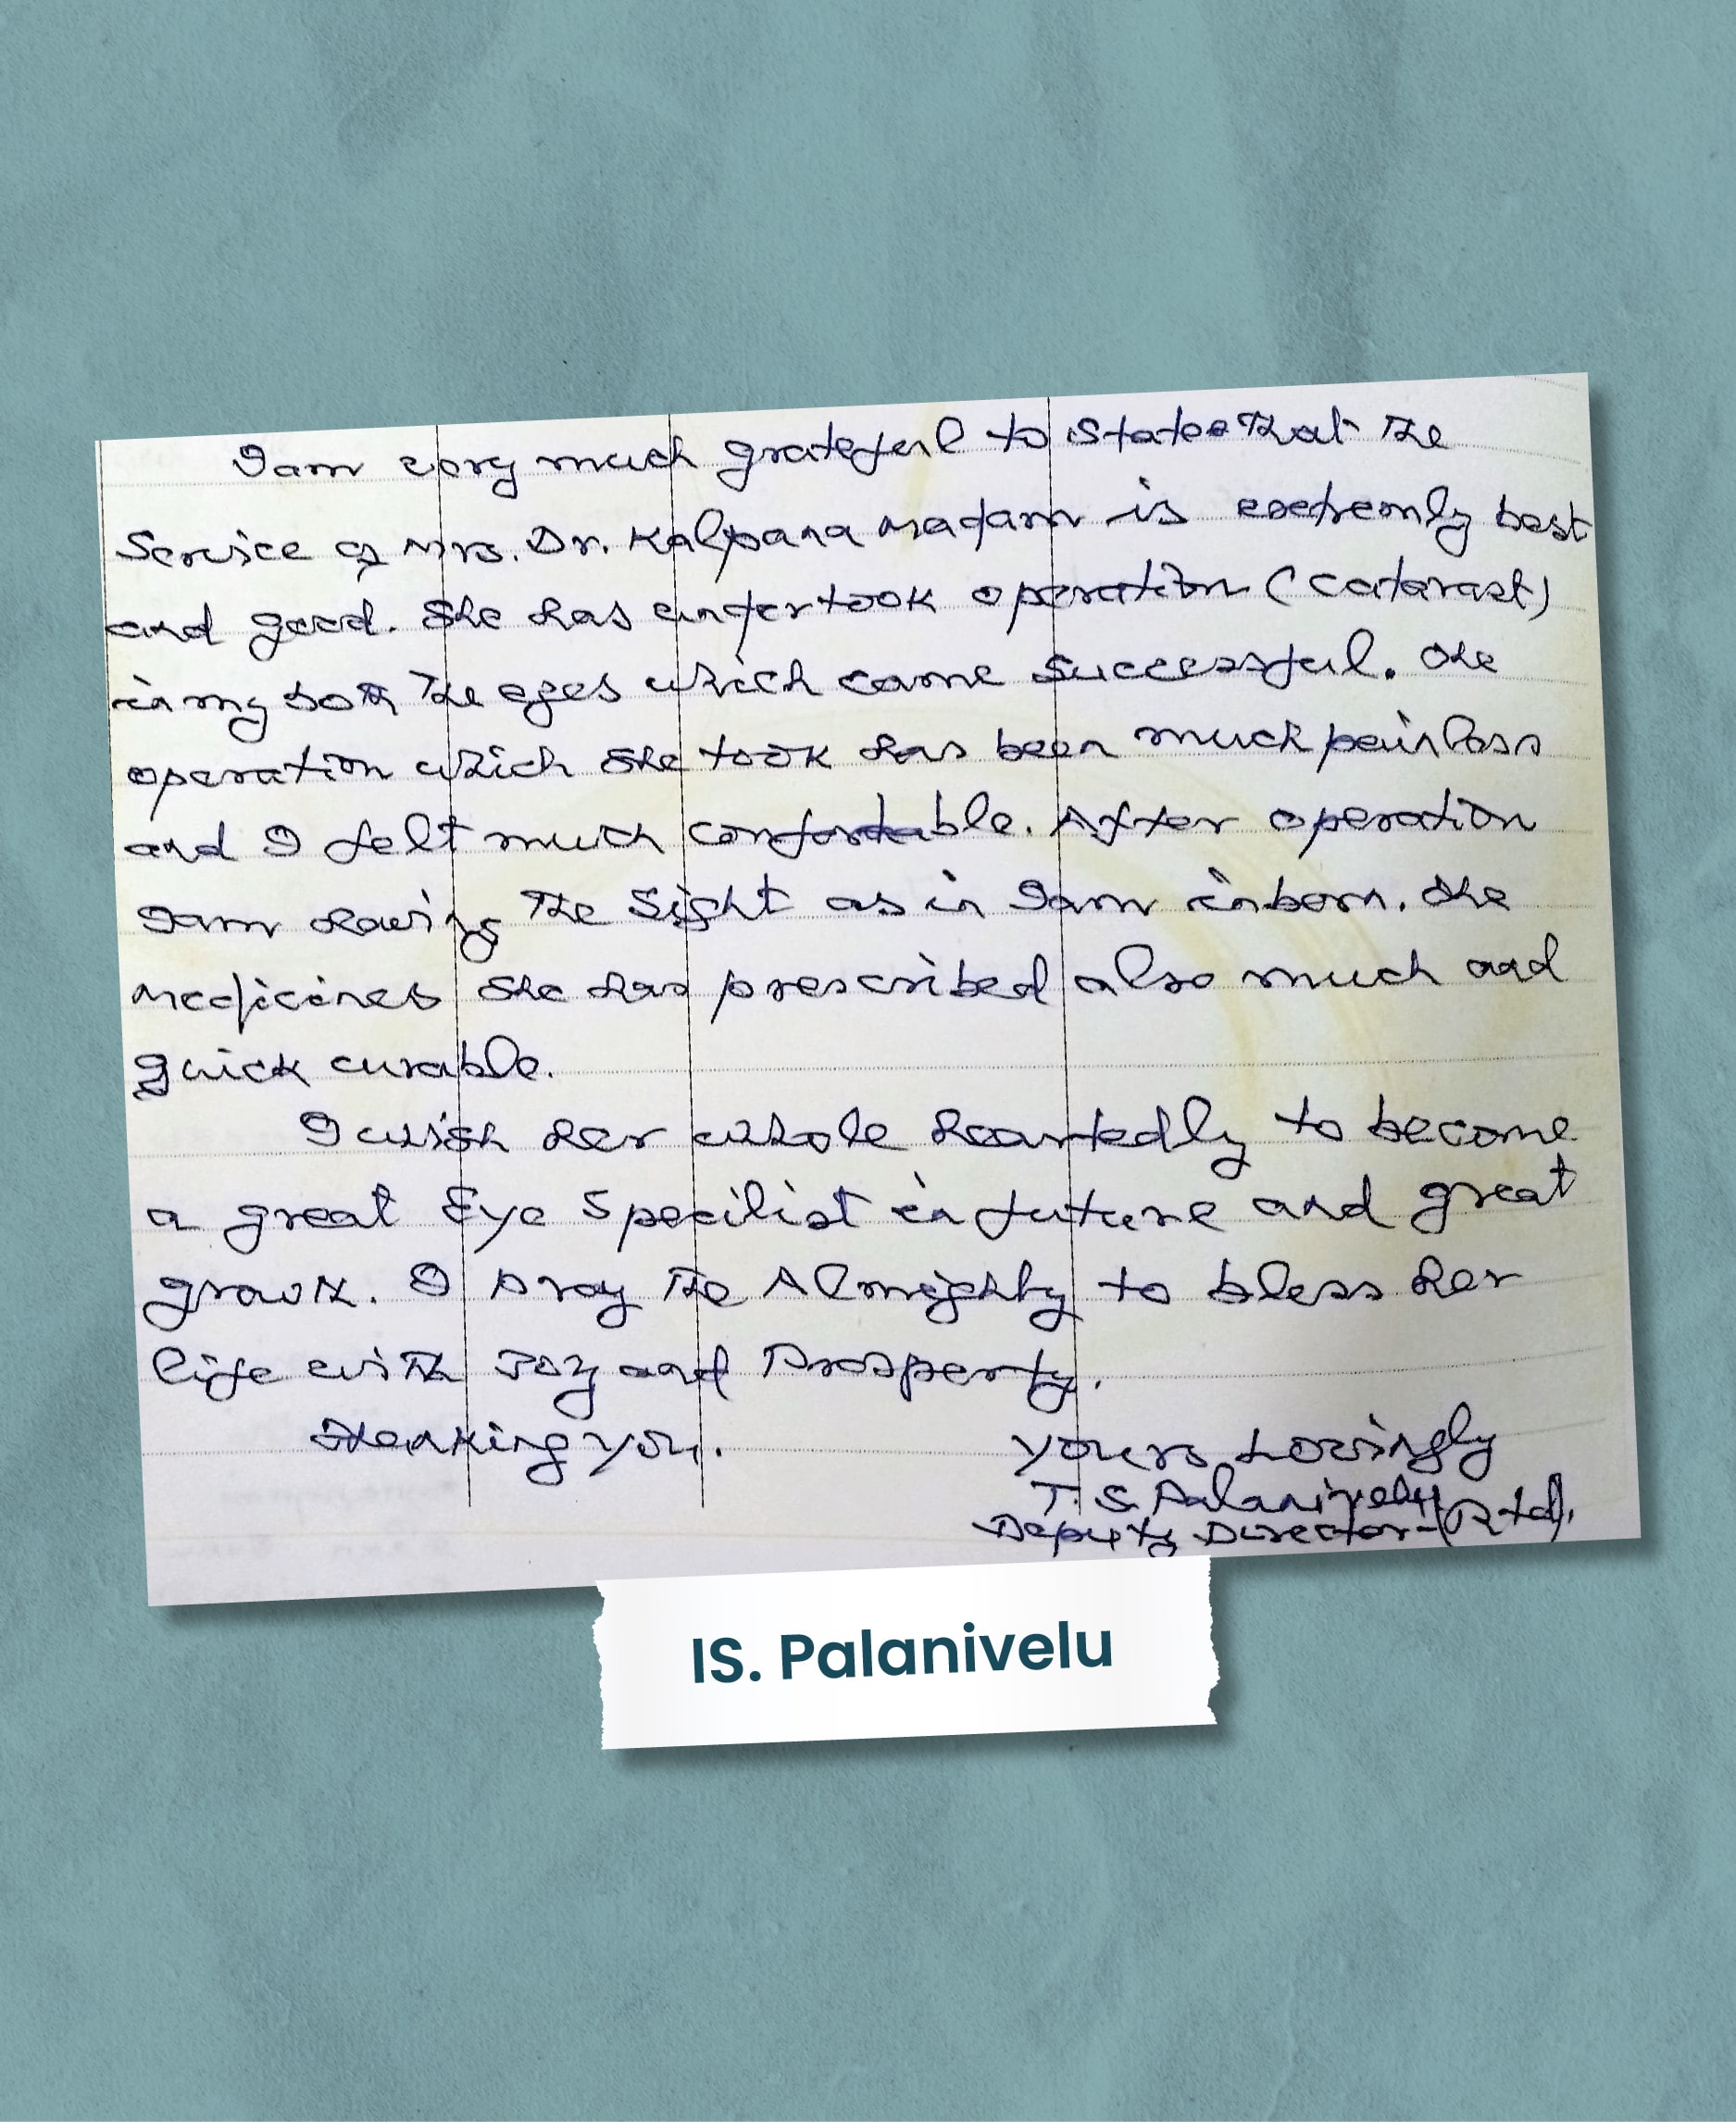 I am very much grateful to state that the
Service of Mrs. Dr. Kalpana Madam is extremly best
and good. She has undertook operation (catarast)
in my both the eyes which came successful. The
operation which she took has been much painless
and I felt much comfortable. After operation
I am having the Sight as in I am inborn. The
medicines she has prescribed also much and
quick curable.
I wish her whole heartedly to become
a great Eye Specilist in future and great
growth. I pray the Almighty to bless her
life with Joy and Prosperty.
Thanking you.
Yours Lovingly
T. S. Palanivelu
Deputy Director-(Rtd).
IS. Palanivelu